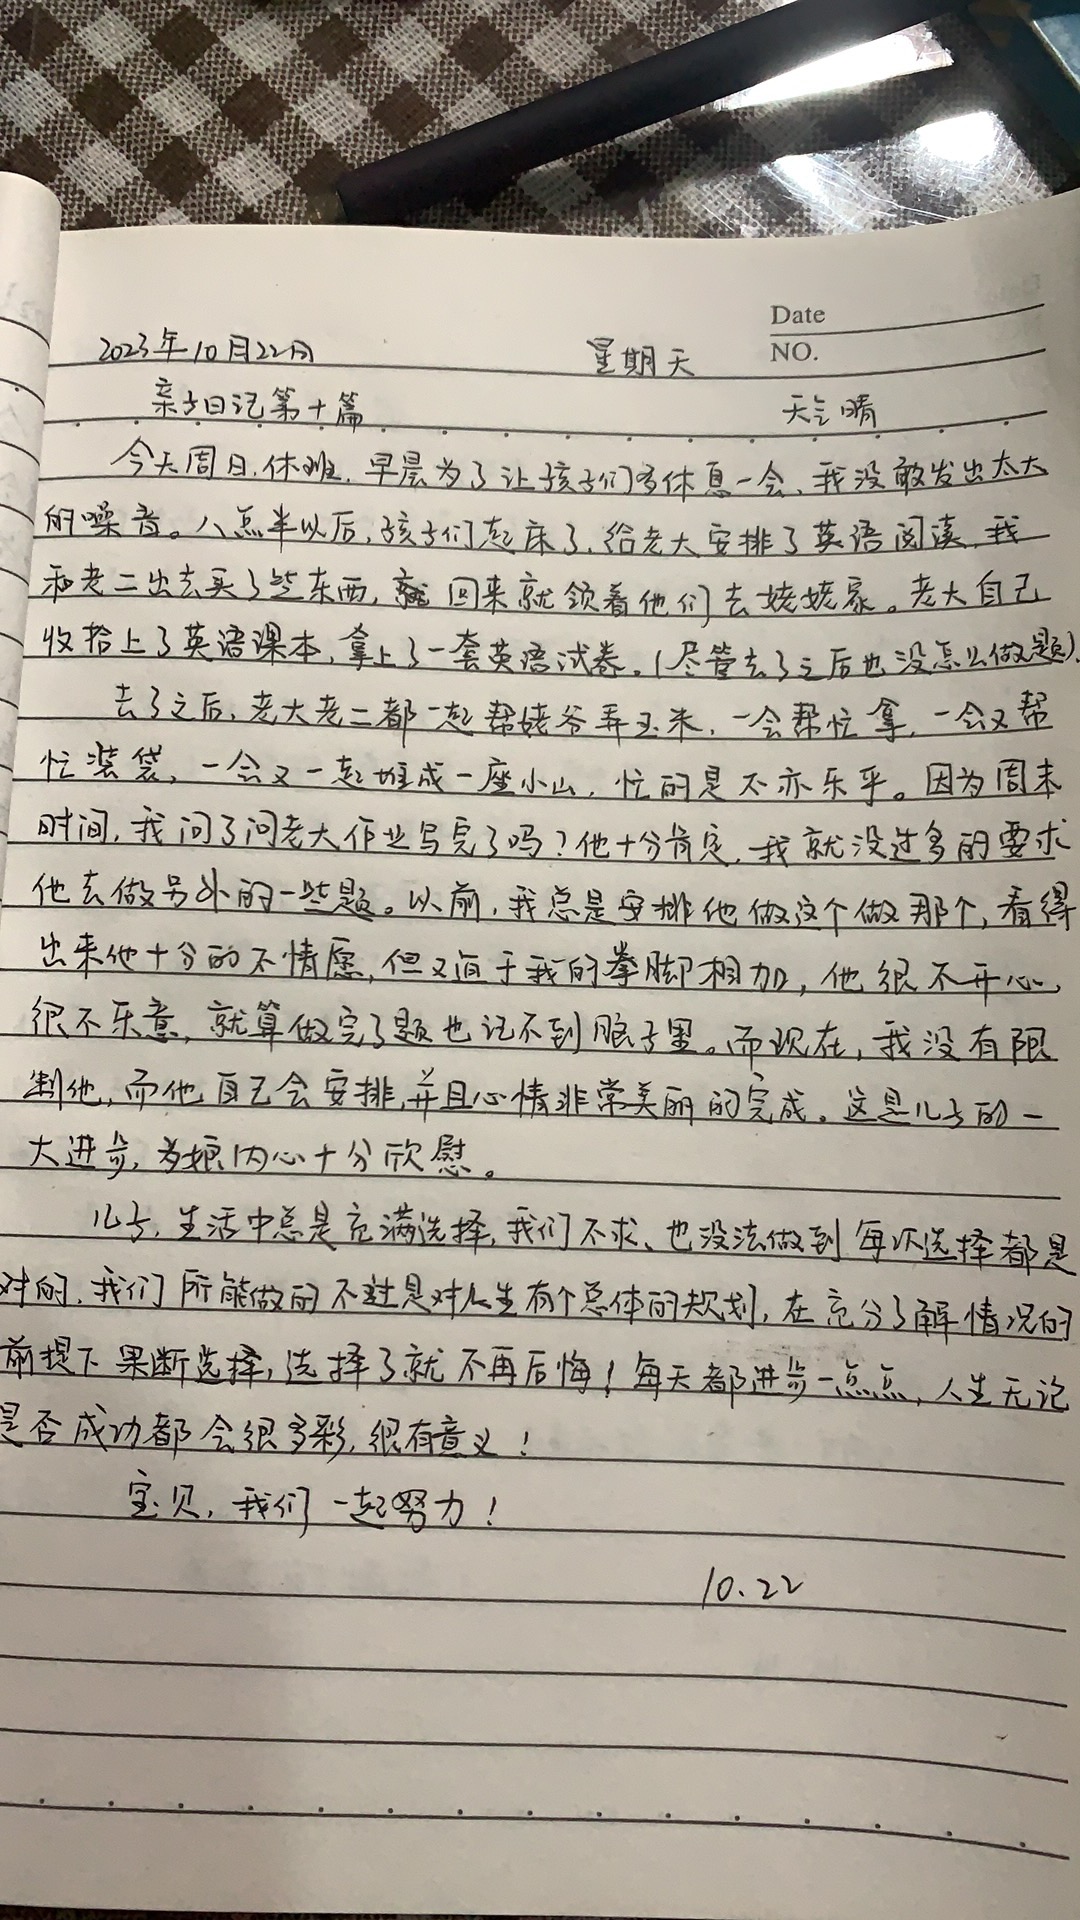 Date
2023年10月22日 星期天 NO.
亲子日记第十篇 天气晴
今天周日,休班,早晨为了让孩子们多休息一会,我没敢发出太大
的噪音。八点半以后,孩子们起床了,给老大安排了英语阅读,我
和老二出去买了些东西,就回来就领着他们去姥姥家。老大自己
收拾上了英语课本,拿上了一套英语试卷。(尽管去了之后也没怎么做题).
去了之后,老大老二都一起帮姥爷弄玉米,一会帮忙拿,一会又帮
忙装袋,一会又一起堆成一座小山,忙的是不亦乐乎。因为周末
时间,我问了问老大作业写完了吗?他十分肯定,我就没过多的要求
他去做另外的一些题。以前,我总是安排他做这个做那个,看得
出来他十分的不情愿,但又迫于我的拳脚相加,他很不开心,
很不乐意,就算做完了题也记不到脑子里。而现在,我没有限
制他,而他自己会安排,并且心情非常美丽的完成。这是儿子的一
大进步,为娘内心十分欣慰。
儿子,生活中总是充满选择,我们不求、也没法做到每次选择都是
对的,我们所能做的不过是对人生有个总体的规划,在充分了解情况的
前提下果断选择,选择了就不再后悔!每天都进步一点点,人生无论
是否成功都会很多彩,很有意义!
宝贝,我们一起努力!
10.22